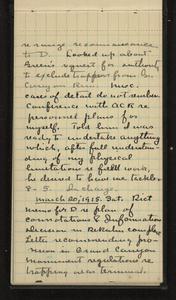 re mixup reconnaissance
to D. Looked up about
Green's request for authority
to exclude trappers from Gr.
Canyon Res. Misc.
cases of detail do not remember.
Conference with ACR re
personnel plans for
myself. Told him I was
ready to undertake anything
which, after full understan-
ding of my physical
limitations re field work,
he desired to have me tackle.
8-5. In charge.
March 30, 1918. Sat. Dict
memo for D re plan of
connotations & Information
Division in Rekulen compl.
Letter recommending pro-
vision in Grand Canyon
Monument regulations re
trapping wild animals.